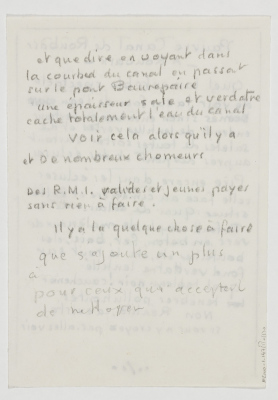 et que dire en voyant dans
la courbed du canal en passant
sur le pont Beaurepaire
une épaisseur sale et verdatre
cache totalement l'eau du canal
Voir cela alors qu'il y a
et De nombreux chomeurs
Des R.M.I. valides et jeunes payes
sans rien à faire.
Il y a la quelque chose a faire
que s'ajoute un plus
a
pour ceux qui acceptent
de nettoyer